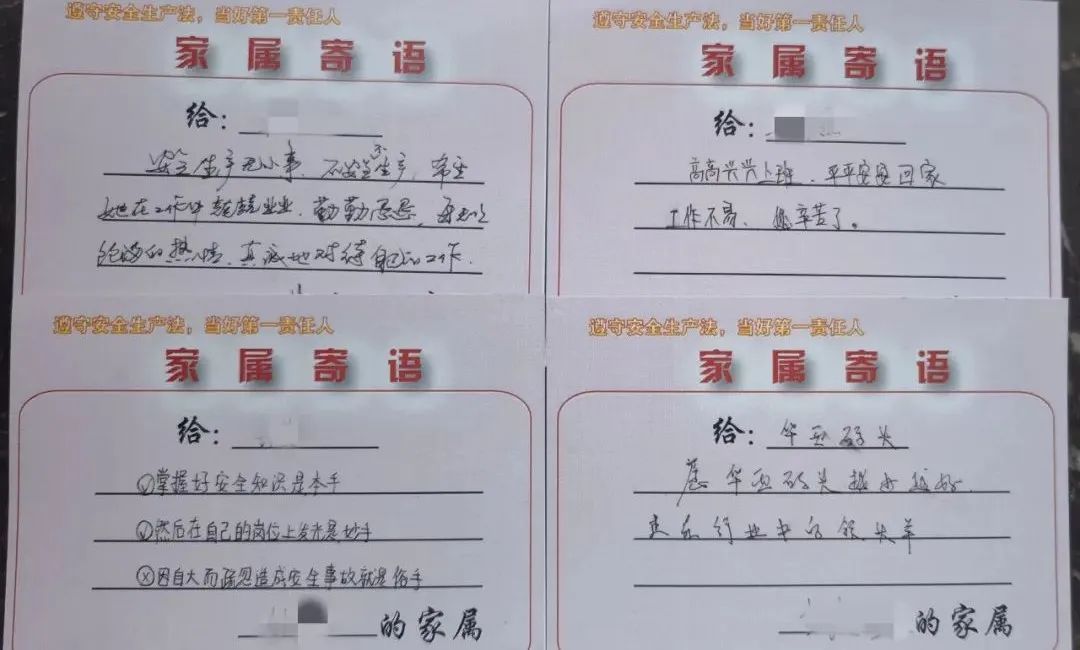 遵守安全生产法，当好第一责任人
家属寄语
给：
安全生产无小事，不安全不生产，希望
她在工作中兢兢业业，勤勤恳恳，再以
饱满的热情，真诚地对待自己的工作．
遵守安全生产法，当好第一责任人
家属寄语
给：
高高兴兴上班，平平安安回家
工作不易、您辛苦了。
遵守安全生产法，当好第一责任人
家属寄语
给：
✓掌握好安全知识是本手
✓然后在自己的岗位上发光是妙手
×因自大而疏忽造成安全事故就是俗手
的家属
遵守安全生产法，当好第一责任人
家属寄语
给：华亚码头
愿华亚码头越办越好．
行业中的领头羊
的家属